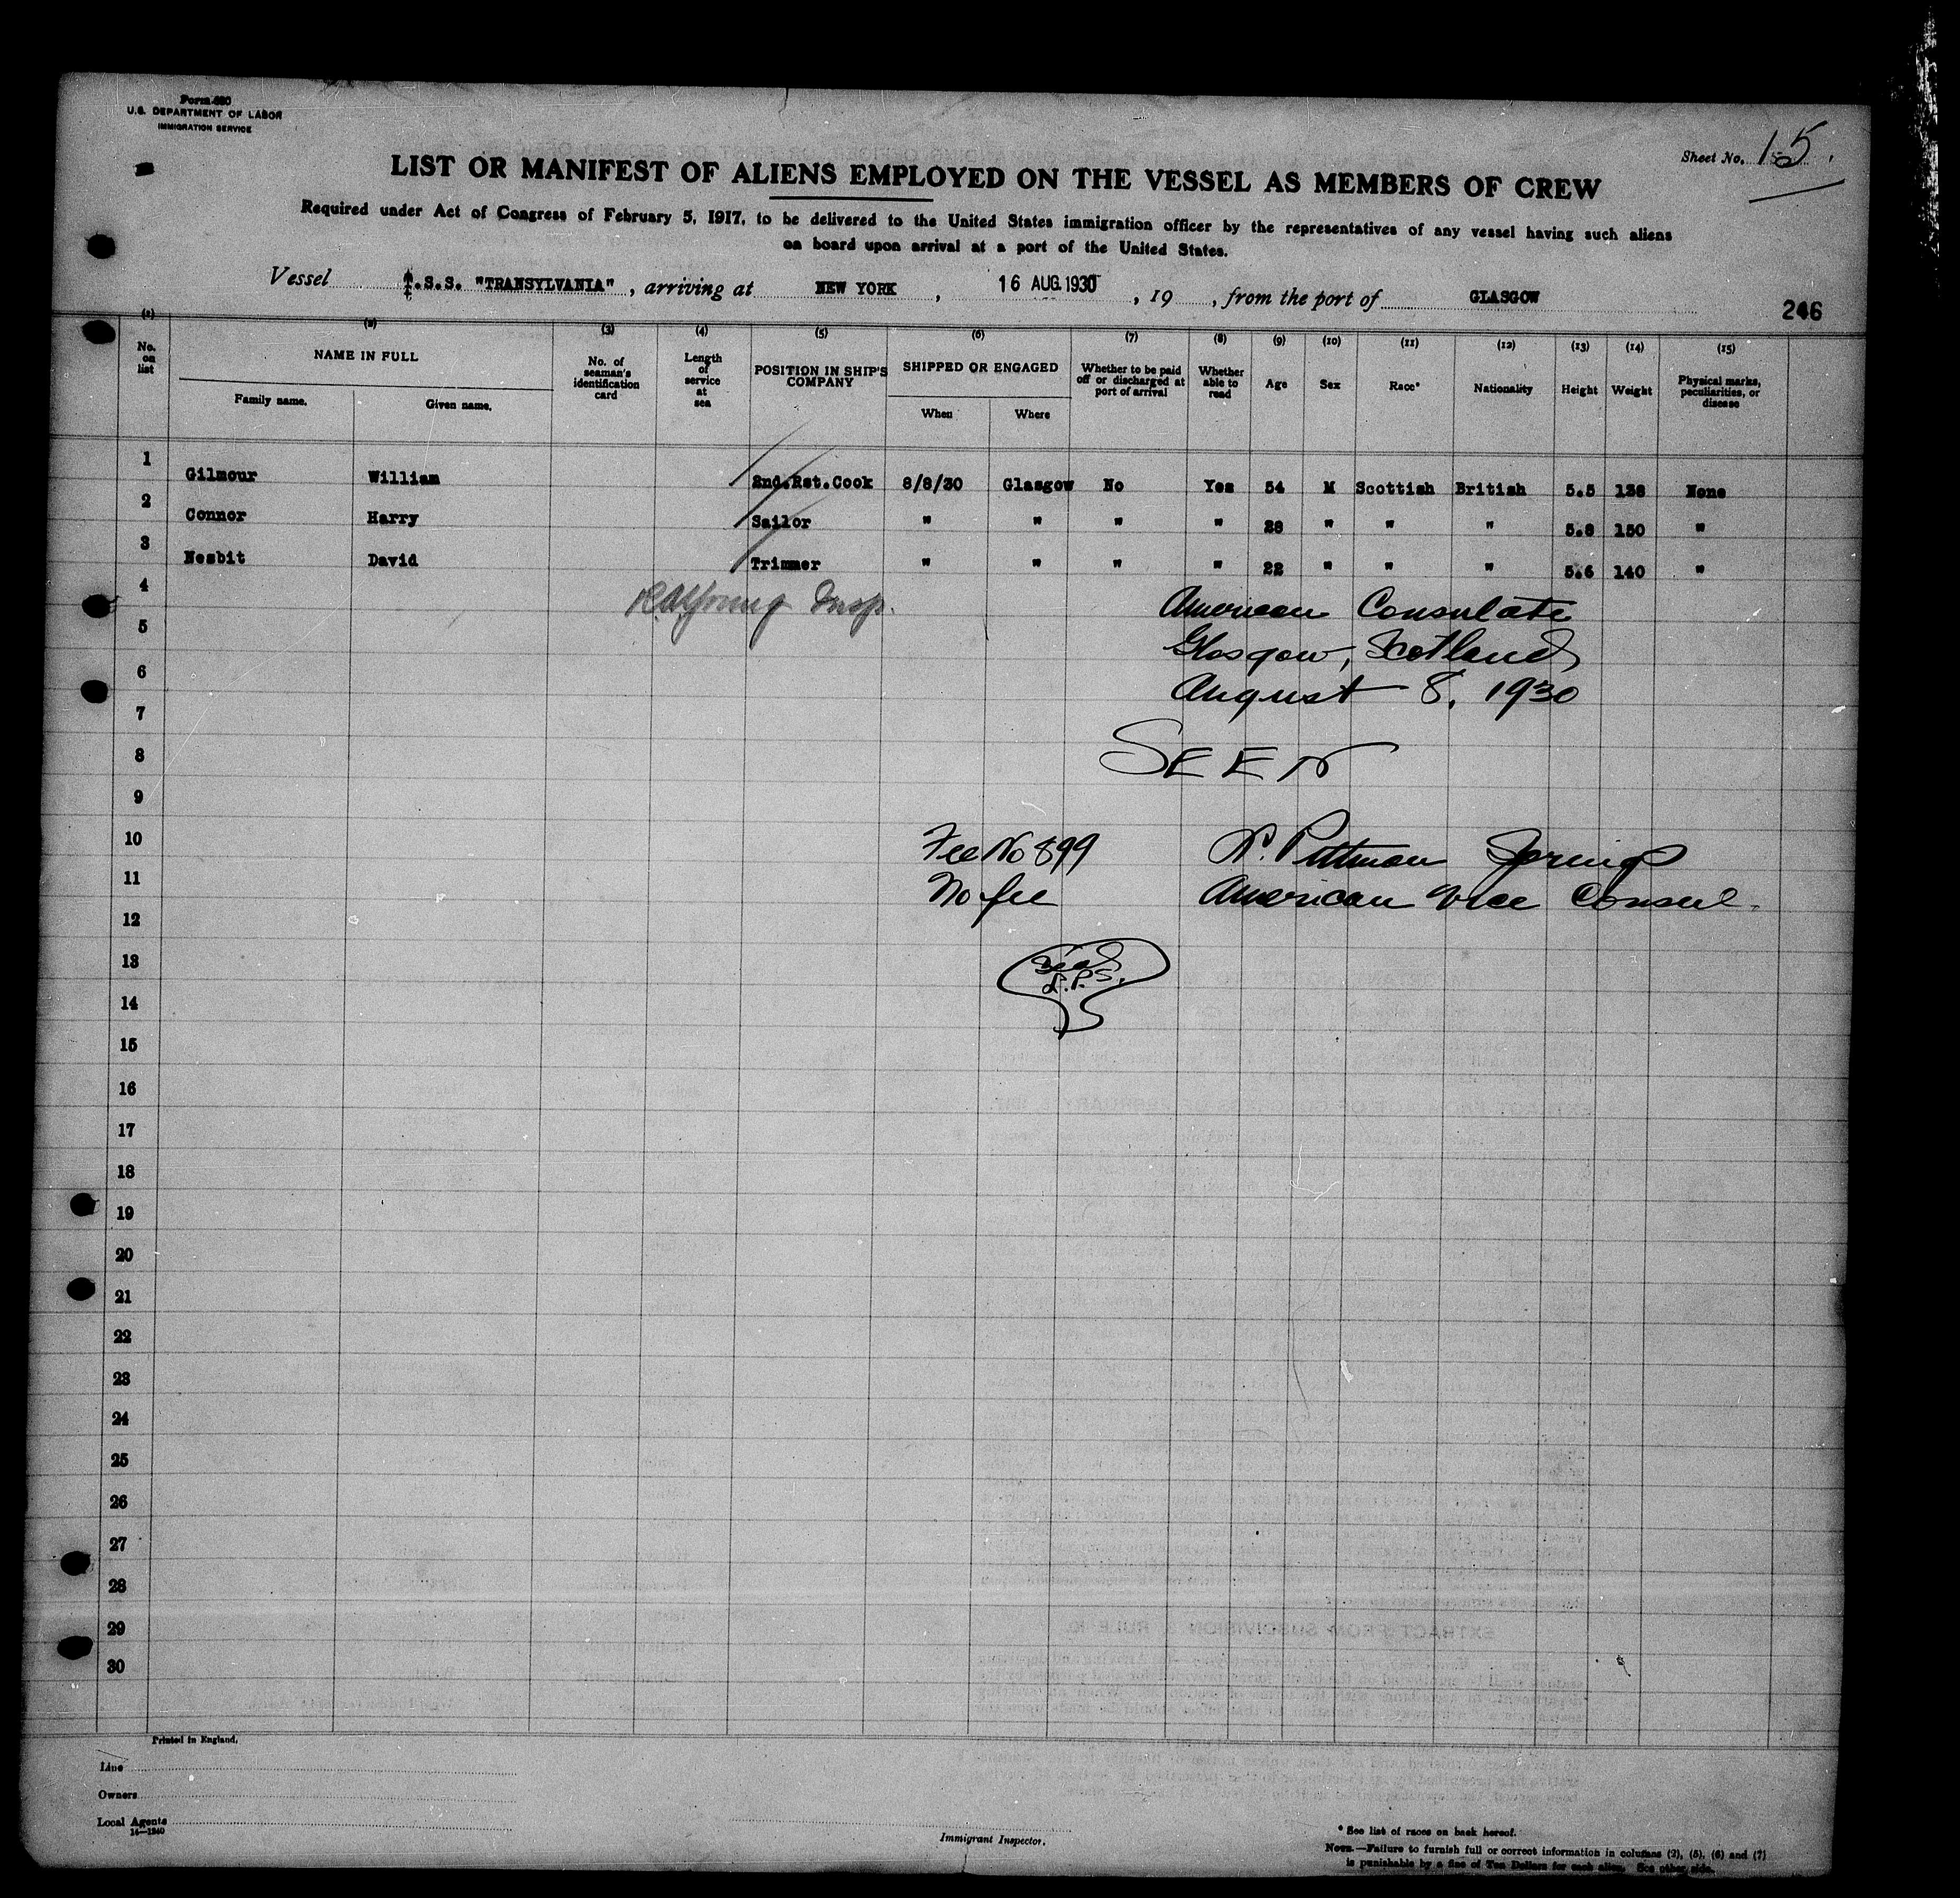 Form 680
U.S. DEPARTMENT OF LABOR
IMMIGRATION SERVICE
Sheet No. 15.
LIST OR MANIFEST OF ALIENS EMPLOYED ON THE VESSEL AS MEMBERS OF CREW
Required under Act of Congress of February 5, 1917, to be delivered to the United States immigration officer by the representatives of any vessel having such aliens
on board upon arrival at a port of the United States.
Vessel T.S.S. "TRANSYLVANIA", arriving at NEW YORK, 16 AUG. 1930, 19 , from the port of GLASGOW
246
(1) (2) (3) (4) (5) (6) (7) (8) (9) (10) (11) (12) (13) (14) (15)
No. on list
NAME IN FULL
Family name. Given name.
No. of seaman's identification card
Length of service at sea
POSITION IN SHIP'S COMPANY
SHIPPED OR ENGAGED
When Where
Whether to be paid off or discharged at port of arrival
Whether able to read
Age
Sex
Race*
Nationality
Height
Weight
Physical marks, peculiarities, or disease
1 Gilmour William 2nd.Rst.Cook 8/8/30 Glasgow No Yes 54 M Scottish British 5.5 138 None
2 Connor Harry Sailor " " " " 28 " " " 5.8 150 "
3 Nesbit David Trimmer " " " " 22 " " " 5.6 140 "
4
Young Insp.
American Consulate
5
Glasgow, Scotland
6
August 8, 1930
7
8
SEEN
9
10
Fee No 899
Pittman Springs
11
No fee
American Vice Consul.
12
13
Seal
L.P.S.
14
15
16
17
18
19
20
21
22
23
24
25
26
27
28
29
30
Printed in England.
Line
Owners
Local Agents
14—1240
Immigrant Inspector.
* See list of races on back hereof.
NOTE.—Failure to furnish full or correct information in columns (2), (5), (6) and (7)
is punishable by a fine of Ten Dollars for each alien. See other side.